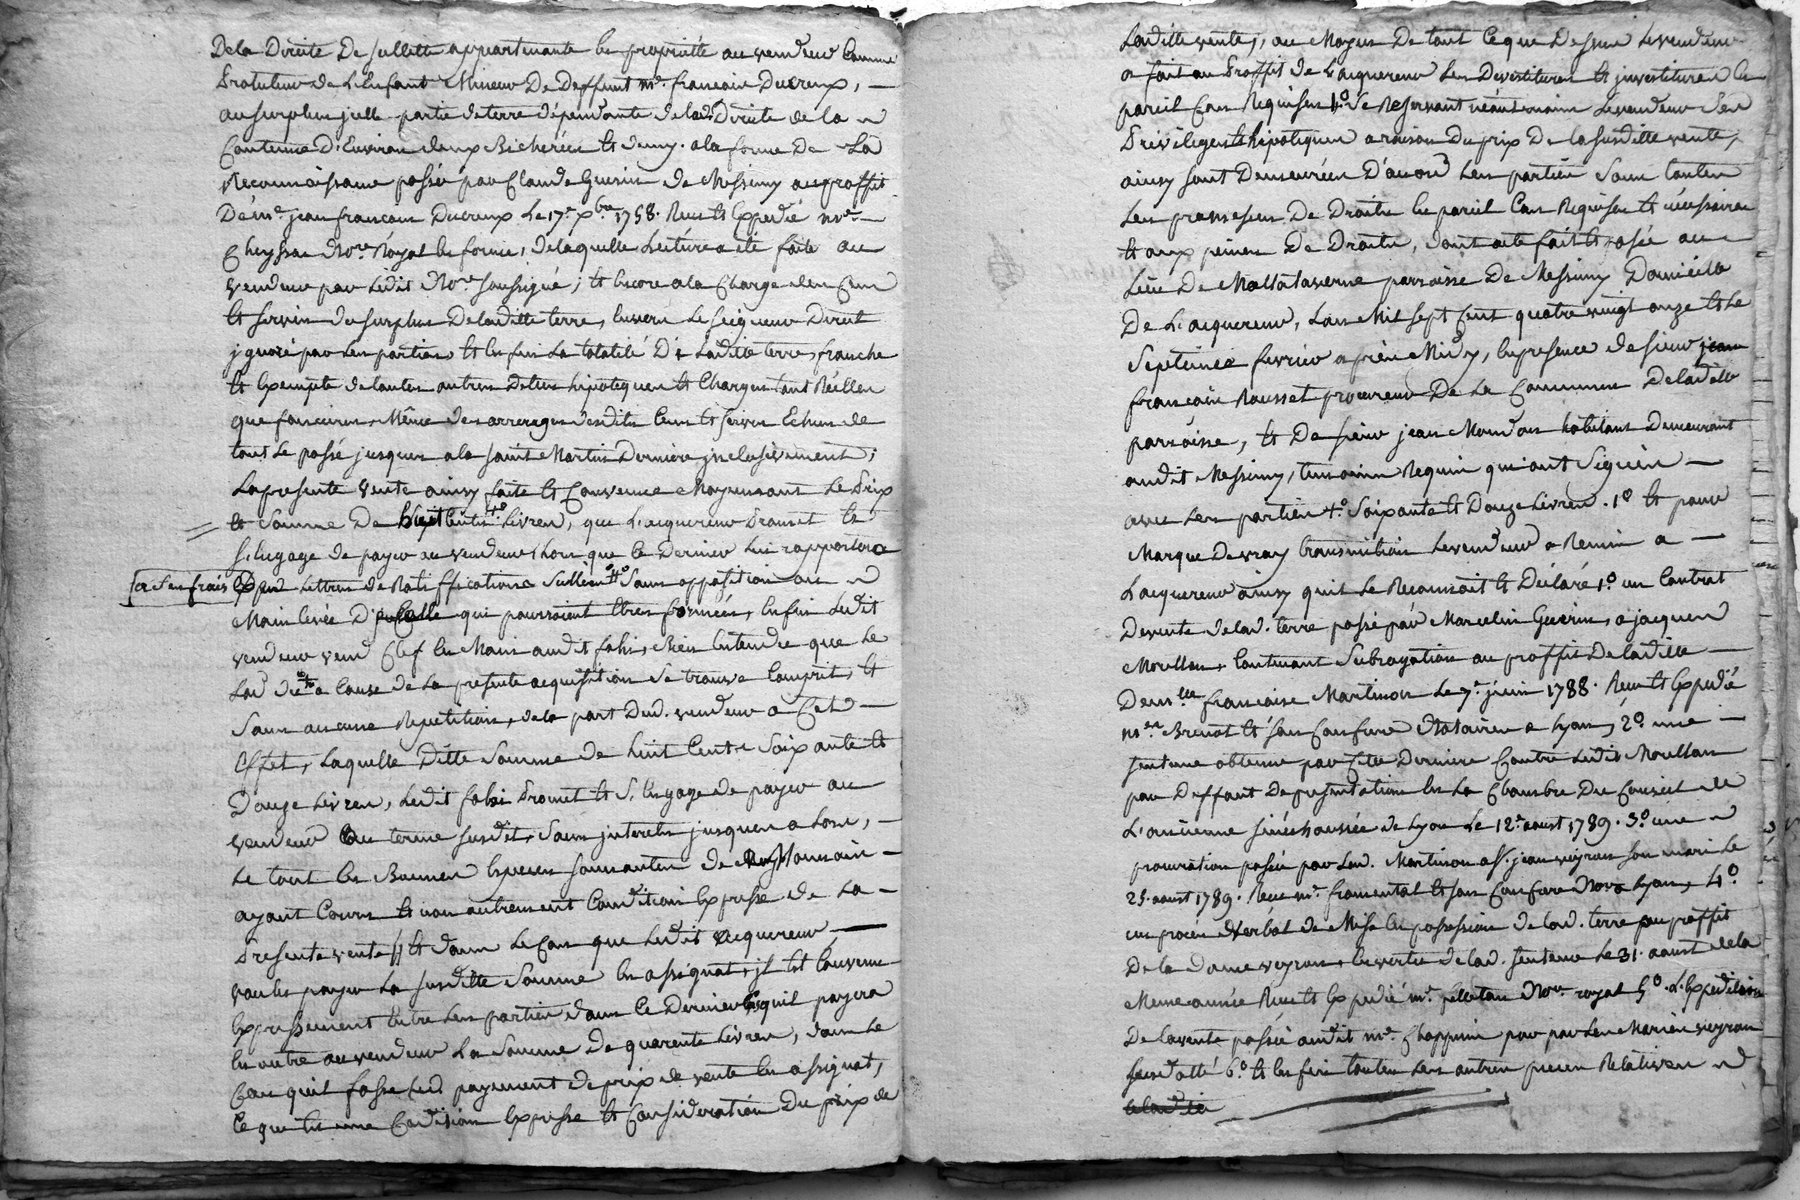 De la Directe De sullette appartenante en propriété au vendeur Comme
Protuteur de L'Enfant Mineur De Deffunt mr. francois Ducreux, —
au surplus jcelle partie de terre dépendante de lad. Directe de la
Contenue D'Environ deux Bicherées et demy. a la forme De La
Reconnoissance passée par Claude Guerin de Messimy au proffit
De mr. jean francois Ducreux Le 17e. Xbre 1758. Recu et Expedié me.
Cheyssac Nore. Royal en forme, de laquelle Lecture a été faite au
vendeur par Ledit Nore. soussigné; et Encore a la Charge des Cens
et servis du surplus De laditte terre, Envers Le seigneur Direct
jgnoré par Les parties, et En fin La totalité De Laditte terre, franche
et Exempte de toutes autres dettes hipoteques et Charges tant Réelles
que foncieres, Même des arrerages desdits Cens et servis Echus de
tout Le passé jusques a la saint Martin Derniere jnclusivement;
La presente vente ainsy faite et Convenue Moyennant Le Prix
et Somme De Livres, que L'acquereur Promet et
s'Engage de payer au vendeur Lors que Ce Dernier Lui rapportera
(a Ses frais) Lettres de Ratiffications Scellées Sans opposition ou
Main Levée D'jcelle qui pourroient Etres formées, En fin Ledit
vendeur vend Clef En Main audit fahi, Bien Entendu que Le
Lad a Cause de La presente acquisition Se trouve Compris, et
Sans aucune Repetition, de la part Dud. vendeur a Cet —
Effet, Laquelle Ditte Somme de huit Cents Soixante et
Douze Livres, Ledit fahi Promet et S'Engage de payer au
vendeur Au terme susdit, Sans jnterets jusques a Lors, —
Le tout En Bonnes Especes sonnantes de
ayant Cours et non autrement Condition Expresse de La —
Presente vente et dans Le Cas que Ledit acquereur —
voulut payer La susditte Somme En assignat, jl Est Convenu
Expressement Entre Les parties, dans Ce Dernier Cas quil payera
En outre au vendeur La Somme De quarente Livres, dans Le
Cas quil fasse Led. payement de prix de vente En assignat,
Ce qui Est une Condition Expresse et Consideration Du prix de
Laditte vente, au Moyen De tout Ce que Dessus Le vendeur
a fait au Proffit de L'acquereur Les Devestitures et jnvestitures En
pareil Cas Requises Se Reservant néantmoins Le vendeur Ses
Privileges et hipoteques a raison Du prix De la susditte vente,
ainsy sont Demeurées D'accord Les parties Sous toutes
Les promesses De Droits En pareil Cas Requises et nécessaires
et aux peines De Droits, dont acte fait et passé au
Lieu De Mallataverne parroisse De Messimy Domicille
De L'acquereur, L'an Mil sept Cent quatre vingt onze et Le
Septieme fevrier apres Midy, En presence de sieur jean
francois Rousset procureur De La Commune De laditte
parroisse, et De sieur jean habitans Demeurant
audit Messimy, temoins Requis qui ont Signés —
avec Les parties 4º. Soixante et Douze Livres. 1º et pour
Marque De vray transmition Le vendeur a Remis a —
L'acquereur ainsy quil Le Reconnoit et Déclare 1º un Contrat
De vente de lad. terre passé par Marcelin Guerin, a jacques
Moullon, Contenant Subrogation au proffit De laditte —
Demlle. francoise Martinon Le 7e. juin 1788. Recu et Expedié
me. Brenot et son Confrere Notaires a Lyon, 2º. une —
sentence obtenue par Cette Derniere Contre Ledit Moullon
par Deffaut De presentation En La Chambre Du Conseil de
L'ancienne sénéchaussée de Lyon Le 12e. aoust 1789. 3º. une
procuration passée par Lad. Martinon a Sr. jean veyron Son mari Le
25. aoust 1789. Recu mr. fromental et son Confrere Nores Lyon, 4º.
un procès verbal de Mise En possession de lad. terre au proffit
De la Dame veyron, En vertu de lad. sentence Le 31. aoust de la
Meme année Recu et Expedié mr. pelletan Nore. royal 5º. L'Expedition
De la vente passée audit mr. Chappuis par Les Mariés veyron
susdatté 6º. et En fin toutes Les autres pieces Relatives
a laditte